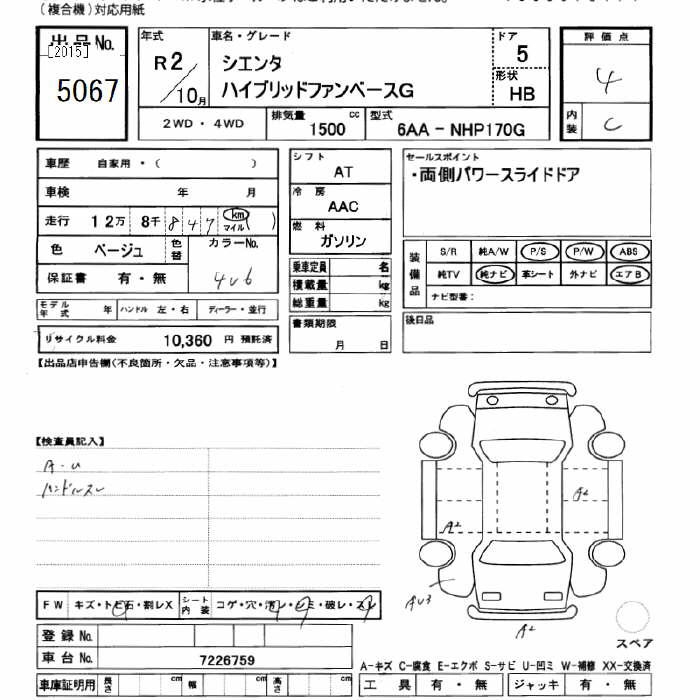 (複合機)対応用紙
出品No.
[2015]
5067
年式
R2/10月
車名・グレード
シエンタ
ハイブリッドファンベースG
ドア
5
形状
HB
評価点
4
内装
C
2WD・4WD
排気量 1500 cc
型式 6AA-NHP170G
車歴 自家用・( )
車検 年 月
走行 12万 8千 847 (km マイル)
色 ベージュ 色替 カラーNo.
保証書 有・無 4V6
モデル年式 年 ハンドル 左・右 ディーラー・並行
リサイクル料金 10,360 円 預託済
シフト
AT
冷房
AAC
燃料
ガソリン
乗車定員 名
積載量 kg
総重量 kg
書類期限
月 日
セールスポイント
・両側パワースライドドア
装備品
S/R 純A/W P/S P/W ABS
純TV 純ナビ 革シート 外ナビ エアB
ナビ型番:
後日品
【出品店申告欄(不良箇所・欠品・注意事項等)】
【検査員記入】
A・U
ハンドルスレ
A2
A2
AU3
A2
スペア
FW キズ・トビ石・割レX シート内装 コゲ・穴・汚レ・シミ・破レ・スレ
登録No.
車台No. 7226759
車庫証明用 長さ cm 幅 cm 高さ cm
A-キズ C-腐食 E-エクボ S-サビ U-凹ミ W-補修 XX-交換済
工具 有・無 ジャッキ 有・無